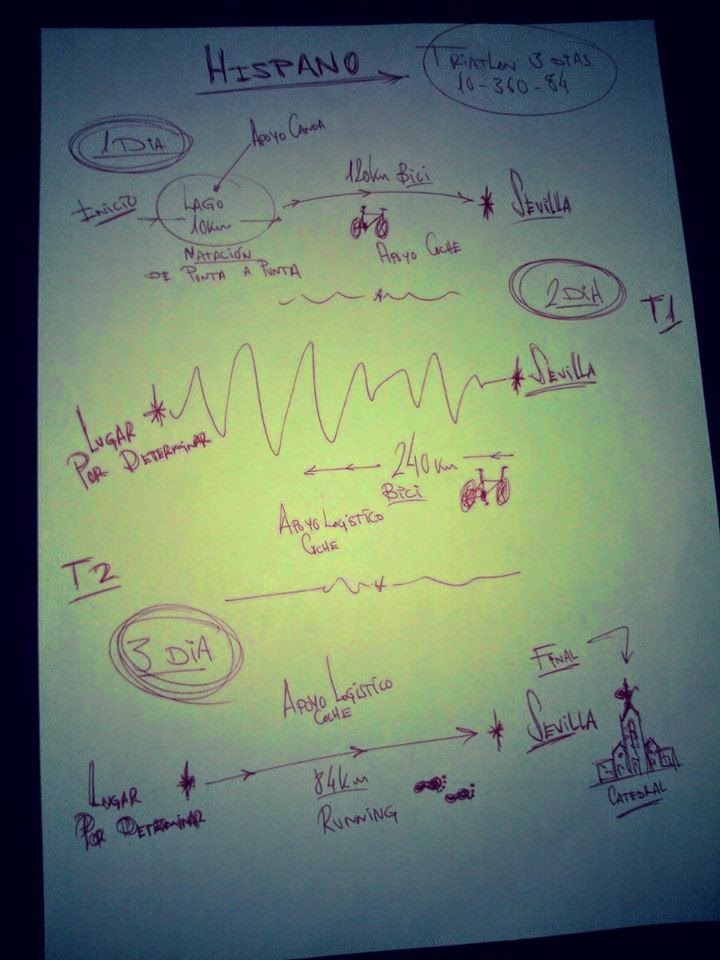 HISPANO
TRIATLON 3 DIAS
10-360-84
1 DIA
APOYO CANOA
INICIO
LAGO
10Km
NATACIÓN
DE PUNTA A PUNTA
120Km BICI
APOYO COCHE
SEVILLA
2 DIA
T1
LUGAR
POR DETERMINAR
SEVILLA
240Km
BICI
APOYO LOGÍSTICO
COCHE
T2
3 DIA
APOYO LOGÍSTICO
COCHE
FINAL
SEVILLA
LUGAR
POR DETERMINAR
84Km
RUNNING
CATEDRAL